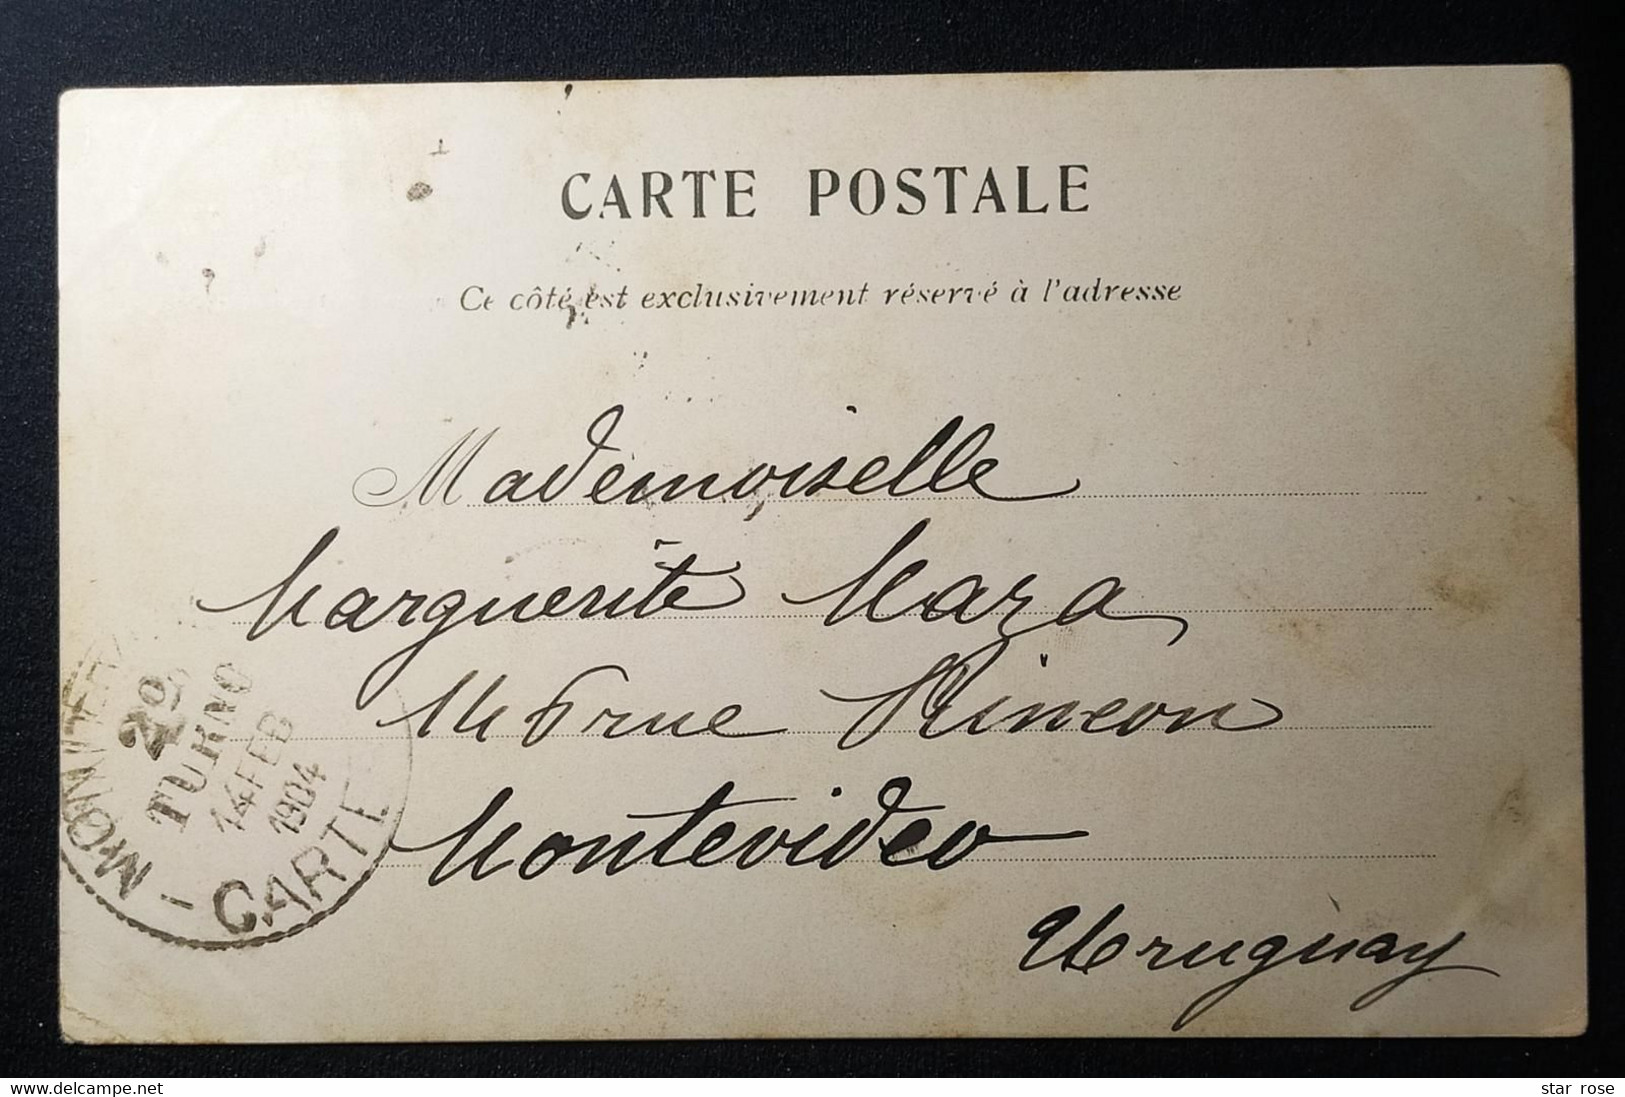 CARTE POSTALE
Ce côté est exclusivement réservé à l'adresse
Mademoiselle
Marguerite Maza
rue Rincon
Montevideo
Uruguay
MONTEVIDEO
2º
TURNO
14 FEB
1904
CARTE
www.delcampe.net
star rose